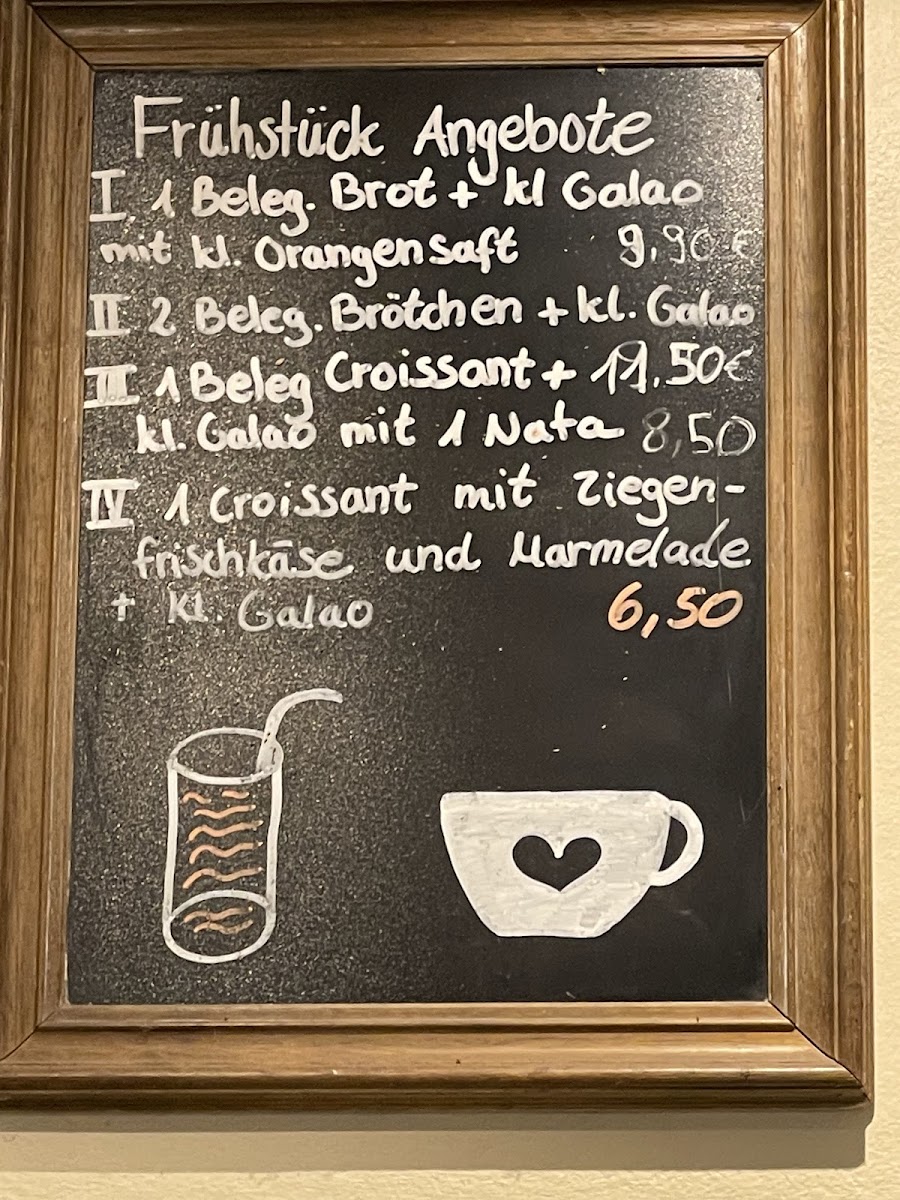 Frühstück Angebote
I. 1 Beleg. Brot + kl Galao
mit kl. Orangensaft 9,90 €
II 2 Beleg. Brötchen + kl. Galao
III 1 Beleg Croissant + 11,50€
kl. Galao mit 1 Nata 8,50
IV 1 Croissant mit Ziegen-
frischkäse und Marmelade
+ kl. Galao 6,50